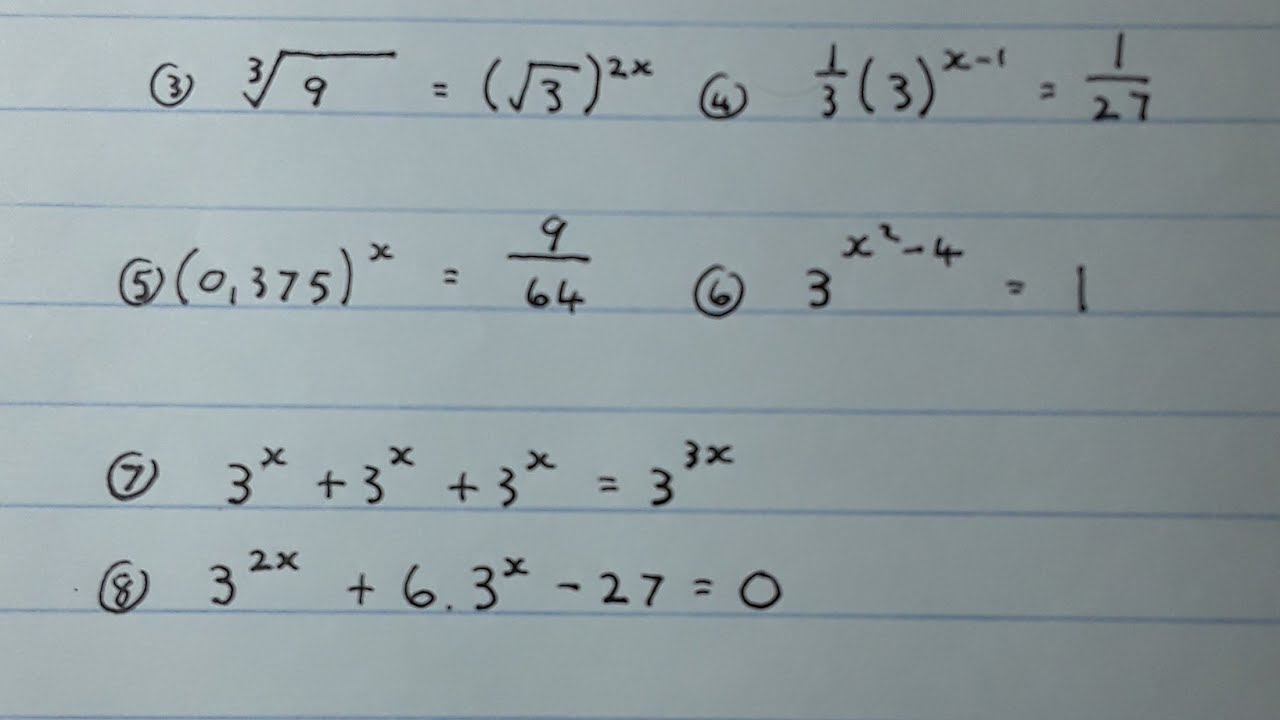 ③ ∛9 = (√3)²ˣ ④ 1/3 (3)ˣ⁻¹ = 1/27
⑤ (0,375)ˣ = 9/64 ⑥ 3^(x²-4) = 1
⑦ 3ˣ + 3ˣ + 3ˣ = 3³ˣ
⑧ 3²ˣ + 6.3ˣ - 27 = 0